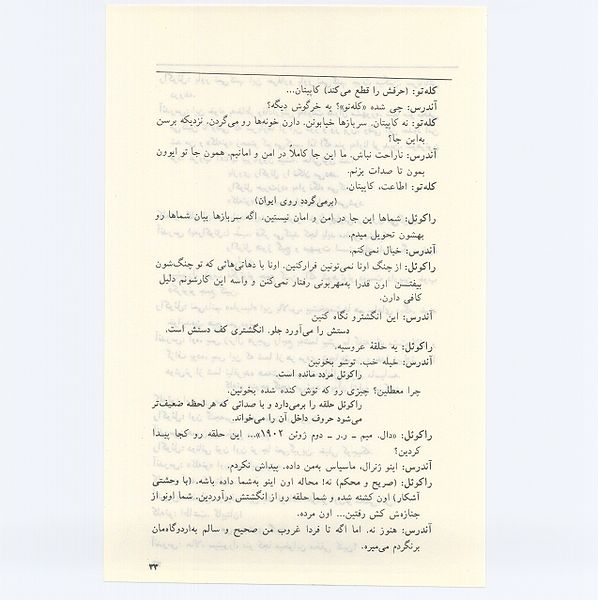 کله‌تو: (حرفش را قطع می‌کند) کاپیتان...
آندرس: چی شده «کله‌تو»؟ یه خرگوش دیگه؟
کله‌تو: نه کاپیتان. سربازها خیابونن. دارن خونه‌ها رو می‌گردن. نزدیکه برسن
به‌این جا؟
آندرس: ناراحت نباش. ما این جا کاملاً در امن و امانیم. همون جا تو ایوون
بمون تا صدات بزنم.
کله‌تو: اطاعت، کاپیتان.
(برمی‌گردد روی ایوان)
راکوئل: شماها این جا در امن و امان نیستین. اگه سربازها بیان شماها رو
بهشون تحویل میدم.
آندرس: خیال نمی‌کنم.
راکوئل: از چنگ اونا نمی‌تونین فرارکنین. اونا با دهاتی‌هائی که تو چنگ‌شون
بیفتن اون قدرا به‌مهربونی رفتار نمی‌کنن و واسه این کارشونم دلیل
کافی دارن.
آندرس: این انگشترو نگاه کنین
دستش را می‌آورد جلو. انگشتری کف دستش است.
راکوئل: یه حلقهٔ عروسیه.
آندرس: خیله خب. توشو بخونین
راکوئل مردد مانده است.
چرا معطلین؟ چیزی رو که توش کنده شده بخونین.
راکوئل حلقه را برمی‌دارد و با صدائی که هر لحظه ضعیف‌تر
می‌شود حروف داخل آن را می‌خواند.
راکوئل: «دال. میم ــ ر.ر ــ دوم ژوئن ۱۹۰۲»... این حلقه رو کجا پیدا
کردین؟
آندرس: اینو ژنرال، ماسیاس به‌من داده. پیداش نکردم.
راکوئل: (صریح و محکم) نه! محاله اون اینو به‌شما داده باشه. (با وحشتی
آشکار) اون کشته شده و شما حلقه رو از انگشتش درآوردین. شما اونو از
جنازه‌ش کش رفتین... اون مرده.
آندرس: هنوز نه. اما اگه تا فردا غروب من صحیح و سالم به‌اردوگاه‌مان
برنگردم می‌میره.
۳۳